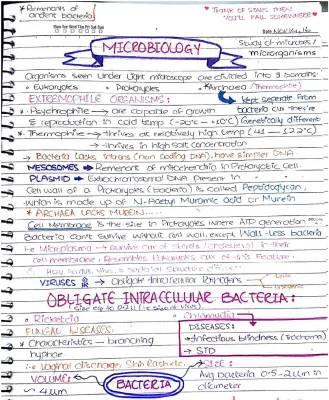 * Remenants of ancient bacteria
"THINK OF STARS THEN
YOU'LL FALL SOMEWHERE"
Date
MICROBIOLOGY
Study of microbes/
microrganisms
Organisms seen under light microscope are divided into 3 domains.
• Eukaryotes • Prokaryotes • *Archaea (Thermophile)
EXTREMOPHILE ORGANISMS:
Kept seperate from
bacteria cuz they're
Genetically different
* Psychrophile → are capable of growth
& reproduction in cold temp (-20°c - +10°c)
* Thermophile → thrives at relatively high temp (41 - 122°c)
→ thrives in high salt concentration
→ Bacteria lacks introns (non coding DNA), have simpler DNA
MESOSOMES → Remenant of mitochondria in Prokaryotic Cell.
PLASMID → Extrachromosomal DNA present in
Cell wall of a Prokaryotes (bacteria) is called Peptidoglycan,
which is made up of N-Acetyl Muramic acid or Murein
* ARCHAEA LACKS MUREIN
Cell Membrane is the site in Prokaryotes where ATP generation
Bacteria can't survive without cell wall, except Walls-less bacteria
i.e Microplasma → survive cuz of sterols/cholesterol in their
cell membrane. Resembles Eukaryotes cuz of this feature.
VIRUSES → Obligate Intracellular Pathogens
OBLIGATE INTRACELLULAR BACTERIA:
• Ricketsia
• Chlamydia
FUNGAL DISEASES:
DISEASES:
* Characteristics - branching
hyphae
→ Infectious blindness (Trachoma)
→ STD
i.e Vaginal discharge, Skin Rash etc.
SIZE:
VOLUME:
Avg bacteria 0.5-2um in
diameter
~ 4um
BACTERIA